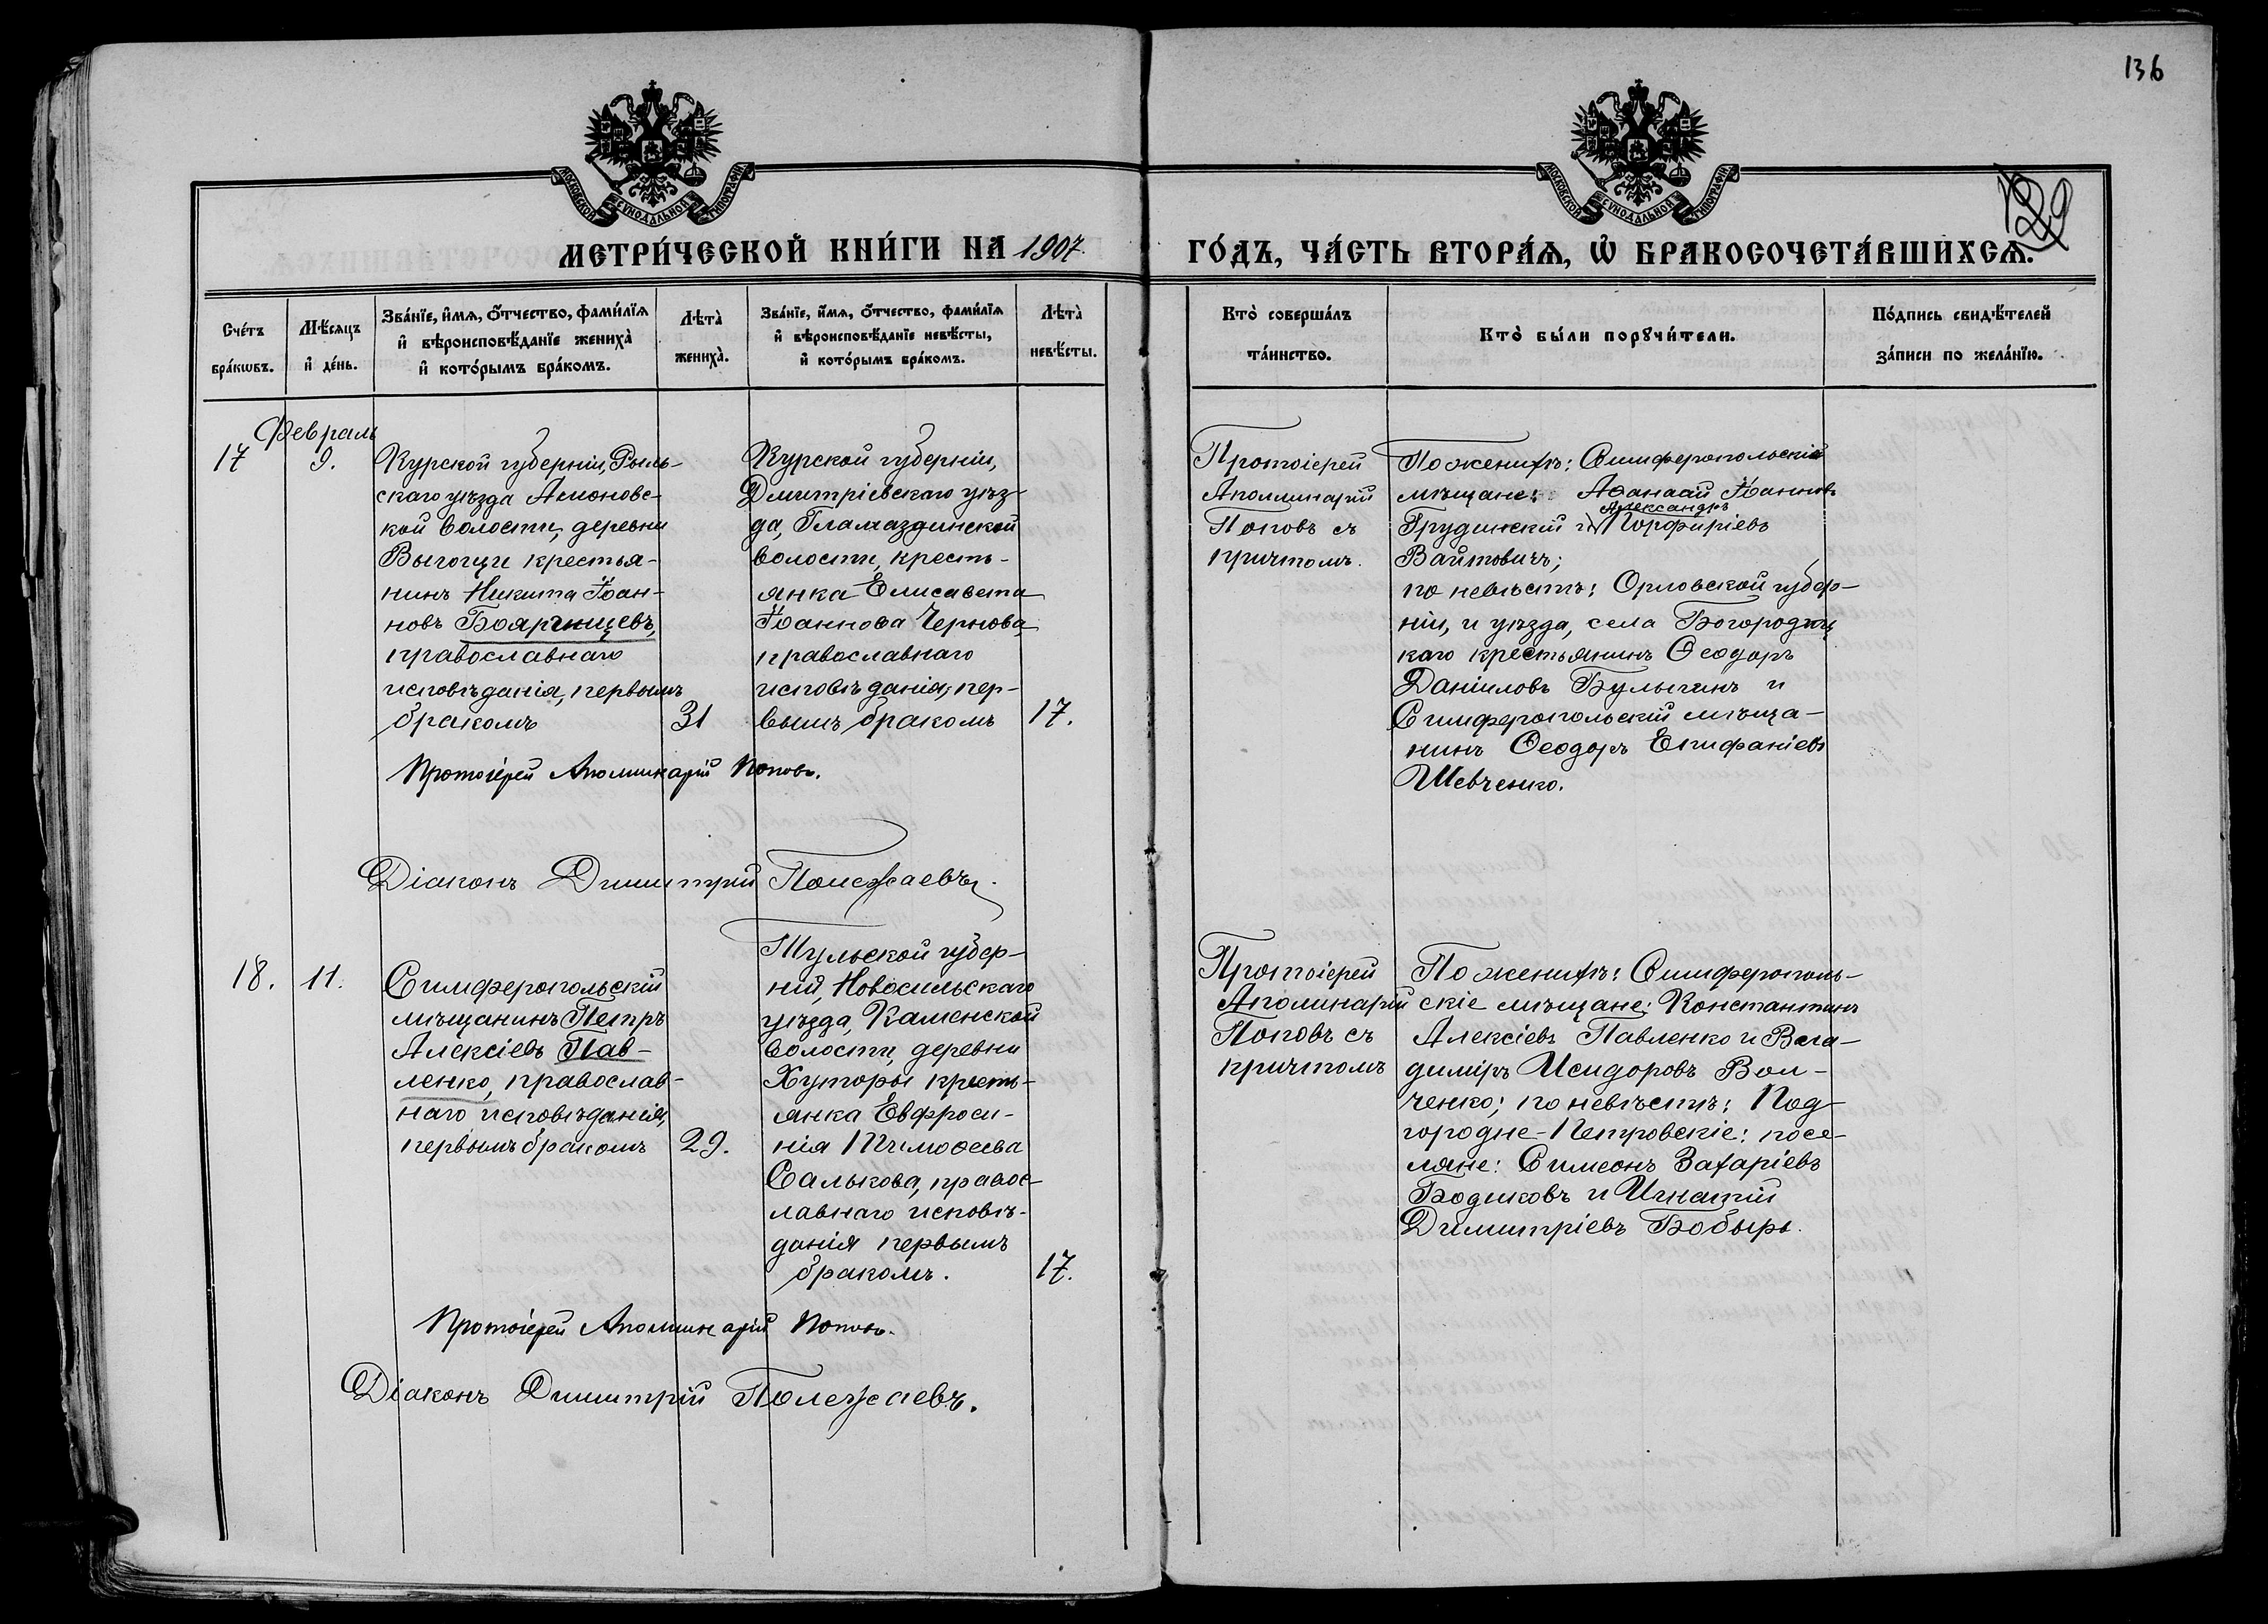 136
МОСКОВСКОЙ СѴНОДАЛЬНОЙ ТИПОГРАФІИ
МОСКОВСКОЙ СѴНОДАЛЬНОЙ ТИПОГРАФІИ
МЕТРИ́ЧЕСКОЙ КНИ́ГИ НА 1907
ГО́ДЪ, ЧА́СТЬ ВТОРА́Ѧ, Ѡ҆ БРАКОСОЧЕТА́ВШИХСѦ.
Сче́тъ
бра́кѡвъ.
Мѣ́сѧцъ
и҆ де́нь.
Зва́нїе, и҆́мѧ, ѻ҆́тчество, фами́лїѧ
и҆ вѣроисповѣ́данїе жениха̀
и҆ кото́рымъ бра́комъ.
Лѣта̀
жениха̀.
Зва́нїе, и҆́мѧ, ѻ҆́тчество, фами́лїѧ
и҆ вѣроисповѣ́данїе невѣ́сты,
и҆ кото́рымъ бра́комъ.
Лѣта̀
невѣ́сты.
Кто̀ соверша́лъ
та́инство.
Кто̀ бы́ли порꙋчи́тели.
По́дпись свидѣ́телей
за́писи по жела́нїю.
Февраль
17
9.
Курской губерніи, Рыль-
скаго уѣзда Асмоновс-
кой волости, деревни
Выгощи крестья-
нинъ Никита Іоан-
новъ Бояринцевъ,
православнаго
исповѣданія, первымъ
бракомъ
31
Курской губерніи,
Дмитріевскаго уѣз-
да, Гламаздинской
волости, кресть-
янка Елисавета
Іоаннова Чернова,
православнаго
исповѣданія, пер-
вымъ бракомъ
17.
Протоіерей
Аполлинарій
Поповъ съ
причтомъ.
По женихѣ: Симферопольскій
мѣщане: Аѳанасій Іоанновъ
Александръ
Грудинскій и Порфиріевъ
Вайтовичъ;
по невѣстѣ: Орловской губер-
ніи, и уѣзда, села Богородиц
каго крестьянинъ Ѳеодоръ
Даніиловъ Булыгинъ и
Симферопольскій мѣща-
нинъ Ѳеодоръ Епифаніевъ
Шевченко.
Протоіерей Аполлинарій Поповъ.
Діаконъ Димитрій Полежаевъ.
18.
11.
Симферопольскій
мѣщанинъ Петръ
Алексіевъ Пав-
ленко, православ-
наго исповѣданія,
первымъ бракомъ
29.
Тульской губер-
ніи, Новосильскаго
уѣзда, Каменской
волости, деревни
Хуторы кресть-
янка Евфроси-
нія Тимоѳеева
Салькова, правос-
лавнаго исповѣ-
данія первымъ
бракомъ.
17.
Протоіерей
Аполинарій
Поповъ съ
причтомъ
По женихѣ: Симферополь-
скіе мѣщане: Константинъ
Алексіевъ Павленко и Вла-
димиръ Исидоровъ Вол-
ченко; по невѣстѣ: Под-
городне-Петровскіе: посе-
ляне: Симеонъ Захаріевъ
Бодиковъ и Игнатій
Димитріевъ Бобырь.
Протоіерей Аполлинарій Поповъ.
Діаконъ Димитрій Полежаевъ.